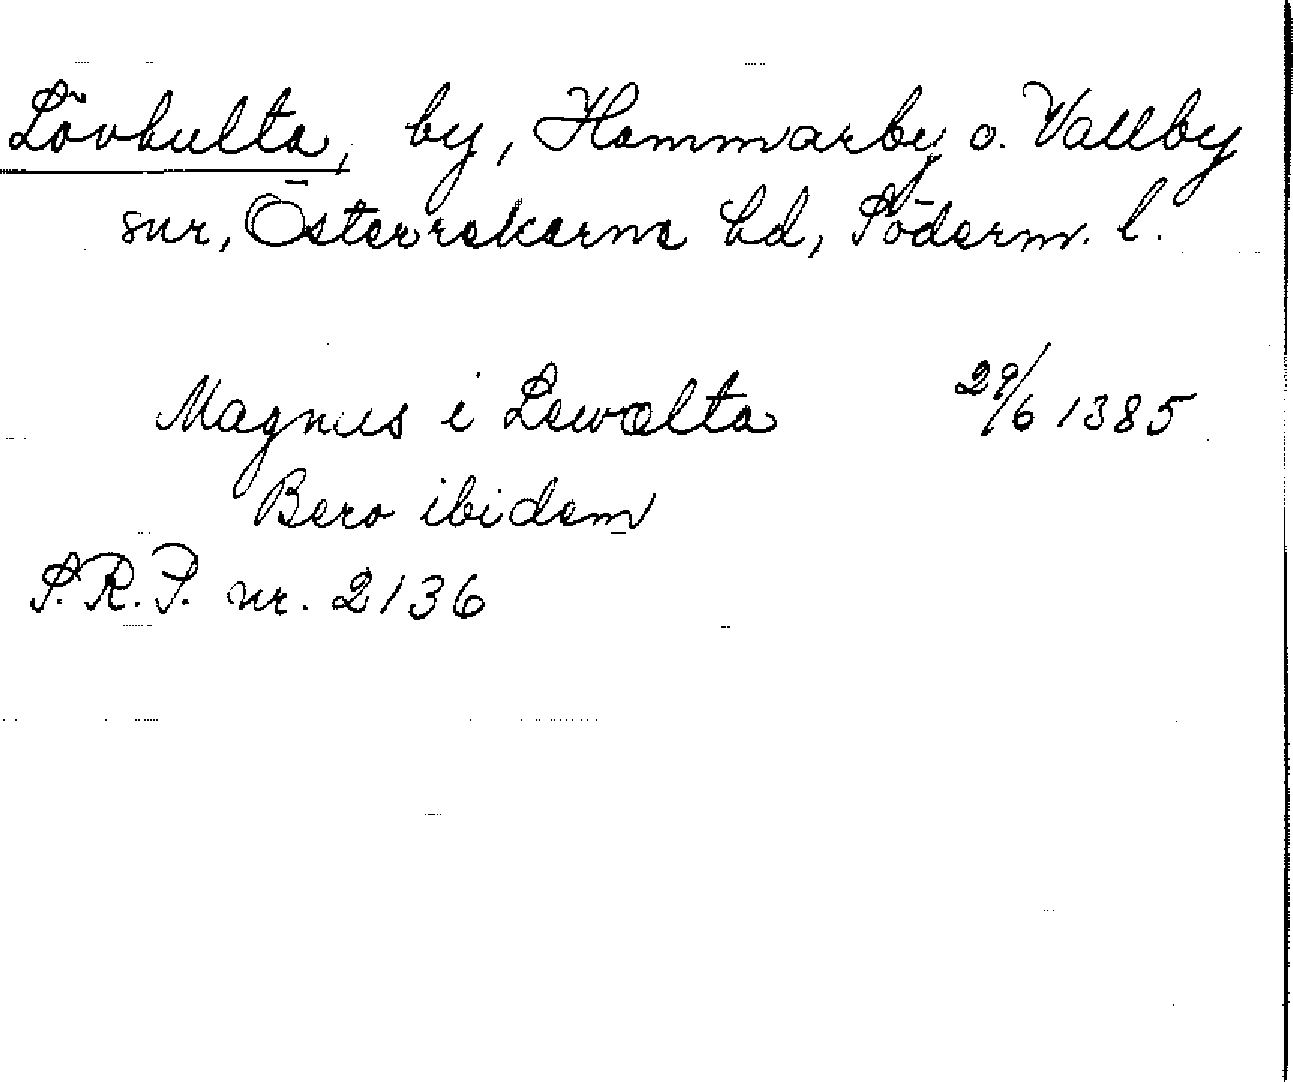 Lövhulta, by, Hammarby o. Vallby
snr, Österrekarne hd, Söderm. l.
Magnus i Lewalta 29/6 1385
Bero ibidem
S.R.P. nr. 2136